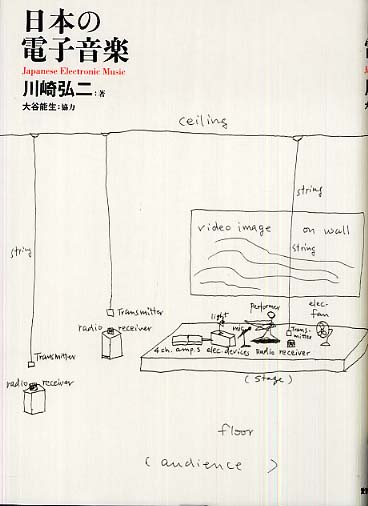 日本の
電子音楽
Japanese Electronic Music
川崎弘二:著
大谷能生:協力
ceiling
string
string
video image on wall
string
Transmitter
radio receiver
light
Performer
elec-
fan
mic
Trans-
mitter
4ch. amp.s elec. devices Radio receiver
(stage)
Transmitter
radio receiver
floor
(audience)